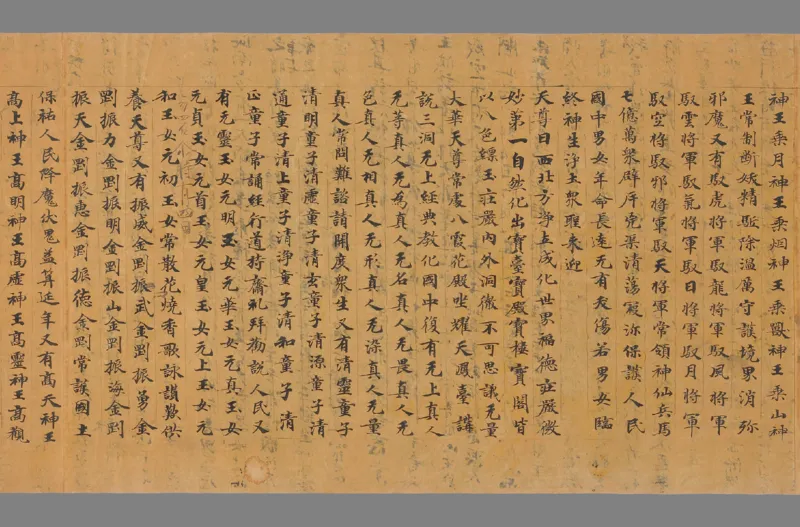 神王乘月神王乘烟神王乘毆神王乘山神
王常制断妖精駈除温萬守護境界消弥
邪魔又有馭虎將軍馭龍將軍馭風將軍
馭雲將軍馭氣將軍馭日將軍馭月將軍
馭空將馭邪將軍馭天將軍常領神仙兵馬
七億萬衆辟斥兇渠清蕩寇泳保護人民
國中男女年命長遠无有夭傷若男女臨
終神生浄土衆聖来迎
天尊曰西北方浄土成化世界福德莊嚴微
妙第一自然化出寶臺寶殿寶樓寶閣皆
以八色繧玉莊嚴内外洞徹不可思議无量
大華天尊常處八霞花殿唑耀天鳳臺講
說三洞无上經典教化國中復有无上真人
无等真人无為真人无名真人无畏真人无
色真人无相真人无形真人无染真人无量
真人常問難諮請開度衆生又有清靈童子
清明童子清虚童子清玄童子清源童子清
通童子清上童子清浄童子清和童子清
正童子常誦經行道持齋礼拜勸說人民又
有元靈玉女元明玉女元華玉女元真玉女
元貞玉女元首玉女元皇玉女元上玉女元
和玉女元初玉女常散花燒香歌詠讃歎供
養天尊又有振威金剛振武金剛振勇金
剛振力金剛振明金剛振山金剛振海金剛
振天金剛振惠金剛振德金剛常護國土
保祐人民降魔伏鬼益筭延年又有高天神王
高上神王高明神王高虚神王高靈神王高觀